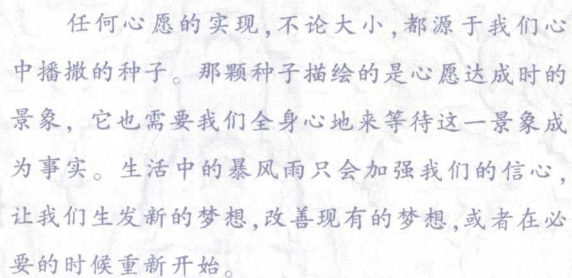 任何心愿的实现,不论大小,都源于我们心
中播撒的种子。那颗种子描绘的是心愿达成时的
景象，它也需要我们全身心地来等待这一景象成
为事实。生活中的暴风雨只会加强我们的信心,
让我们生发新的梦想,改善现有的梦想,或者在必
要的时候重新开始。